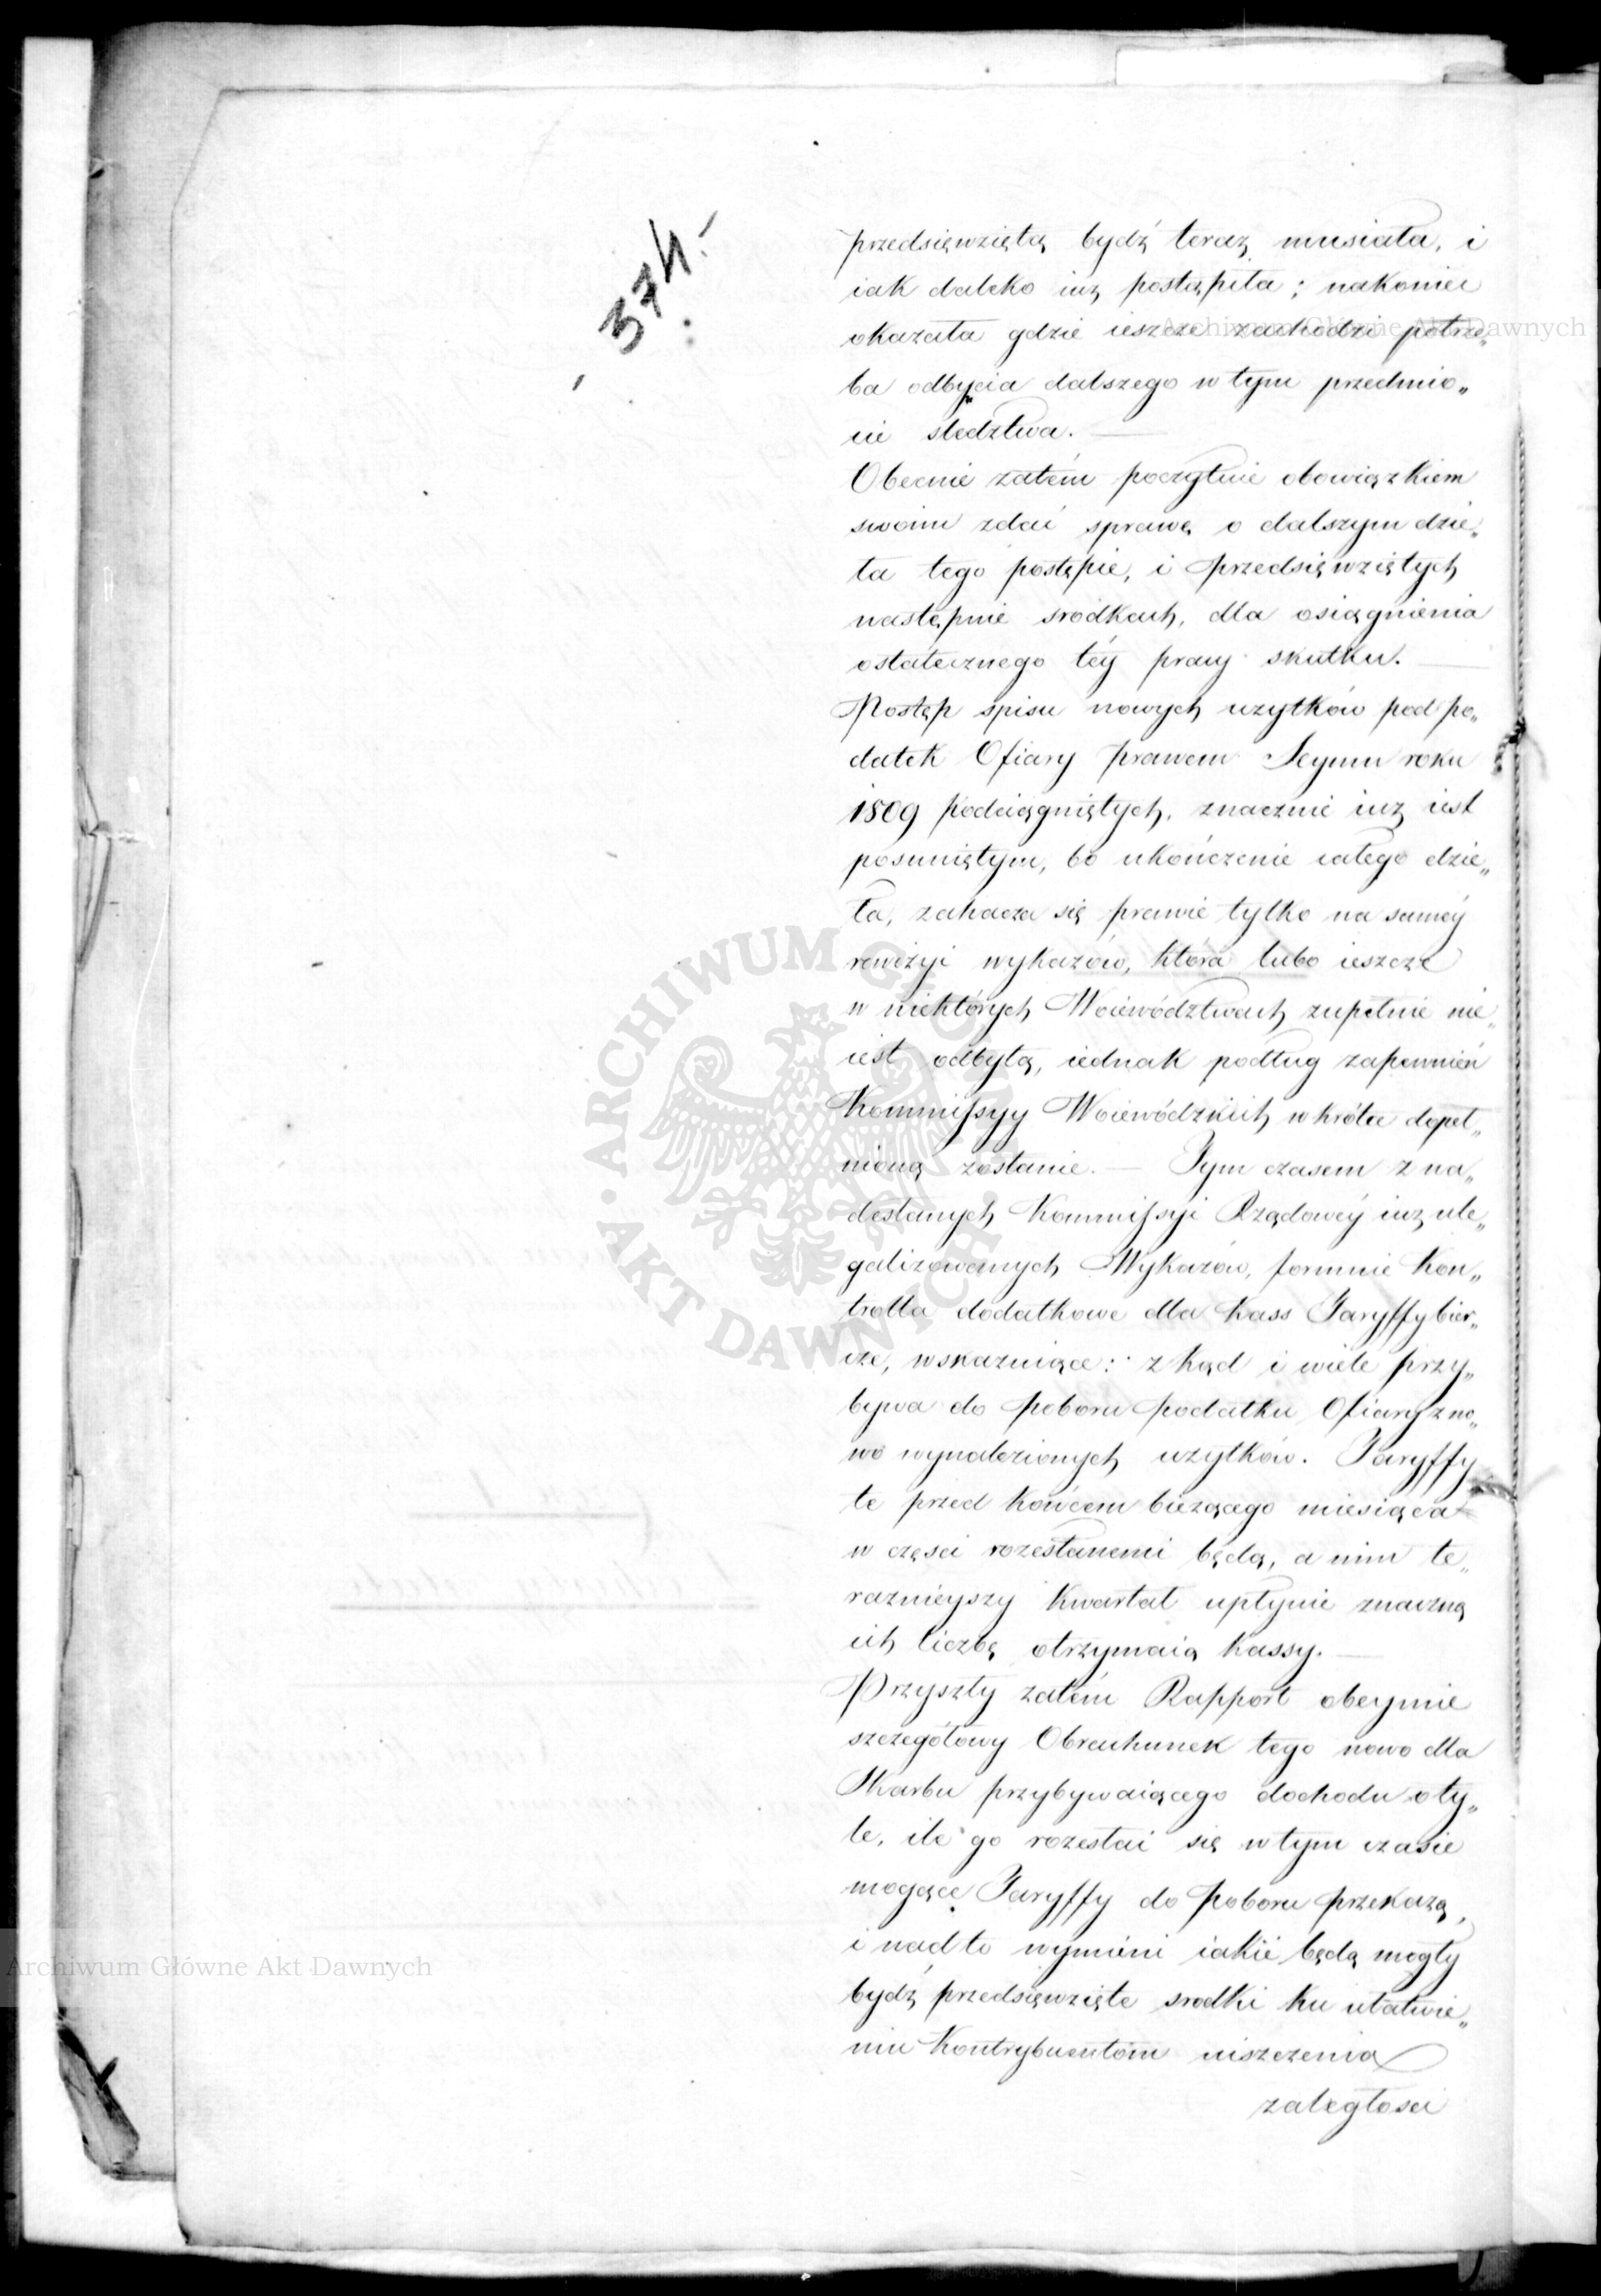 - 374.-
przedsięwziętą bydź teraz musiała, i
iak daleko iuż postąpiła; nakoniec
okazała gdzie ieszcze zachodzi potrze„
ba odbycia dalszego w tym przedmio„
cie sledztwa. —
Obecnie zatém poczytuie obowiązkiem
swoim zdać sprawę o dalszym dzie„
ła tego postępie, i przedsięwziętych
następnie srodkach, dla osiągnienia
ostatecznego téy pracy skutku. —
Postęp spisu nowych użytków pod po„
datek Ofiary prawem Seymu roku
1809 podciągniętych, znacznie iuż iest
posuniętym, bo ukończenie całego dzie„
ła, zahacza się prawie tylko na saméy
rewizyi wykazów, która lubo ieszcze
w niektórych Woiewództwach zupełnie nie„
iest odbytą, iednak podług zapewnień
Kommissyy Woiewódzkich wkrótce dopeł„
nioną zostanie. — Tym czasem z na„
desłanych Kommissyi Rządowéy iuż ule„
galizowanych Wykazów, formuie Kon„
trolla dodatkowe dla Kass Taryffy bier„
cze, wskazuiące: z kąd i wiele przy„
bywa do poboru podatku Ofiary z no„
wo wynalezionych użytków. Taryffy
te przed końcem bieżącego miesiąca
w częsci rozesłanemi będą, a nim te„
raznieyszy Kwartał upłynie znaczną
ich liczbę otrzymaią Kassy. —
Przyszły zatém Rapport obeymie
szczegółowy Obrachunek tego nowo dla
Skarbu przybywaiącego dochodu o ty„
le, ile go rozesłać się w tym czasie
mogące Taryffy do poboru przekażą,
i nadto wymieni iakie będą mogły
bydź przedsięwzięte srodki ku ułatwie„
niu Kontrybuentom uiszczenia
zaległosci
Archiwum Główne Akt Dawnych
Archiwum Główne Akt Dawnych
ARCHIWUM GŁÓWNE · AKT DAWNYCH ·